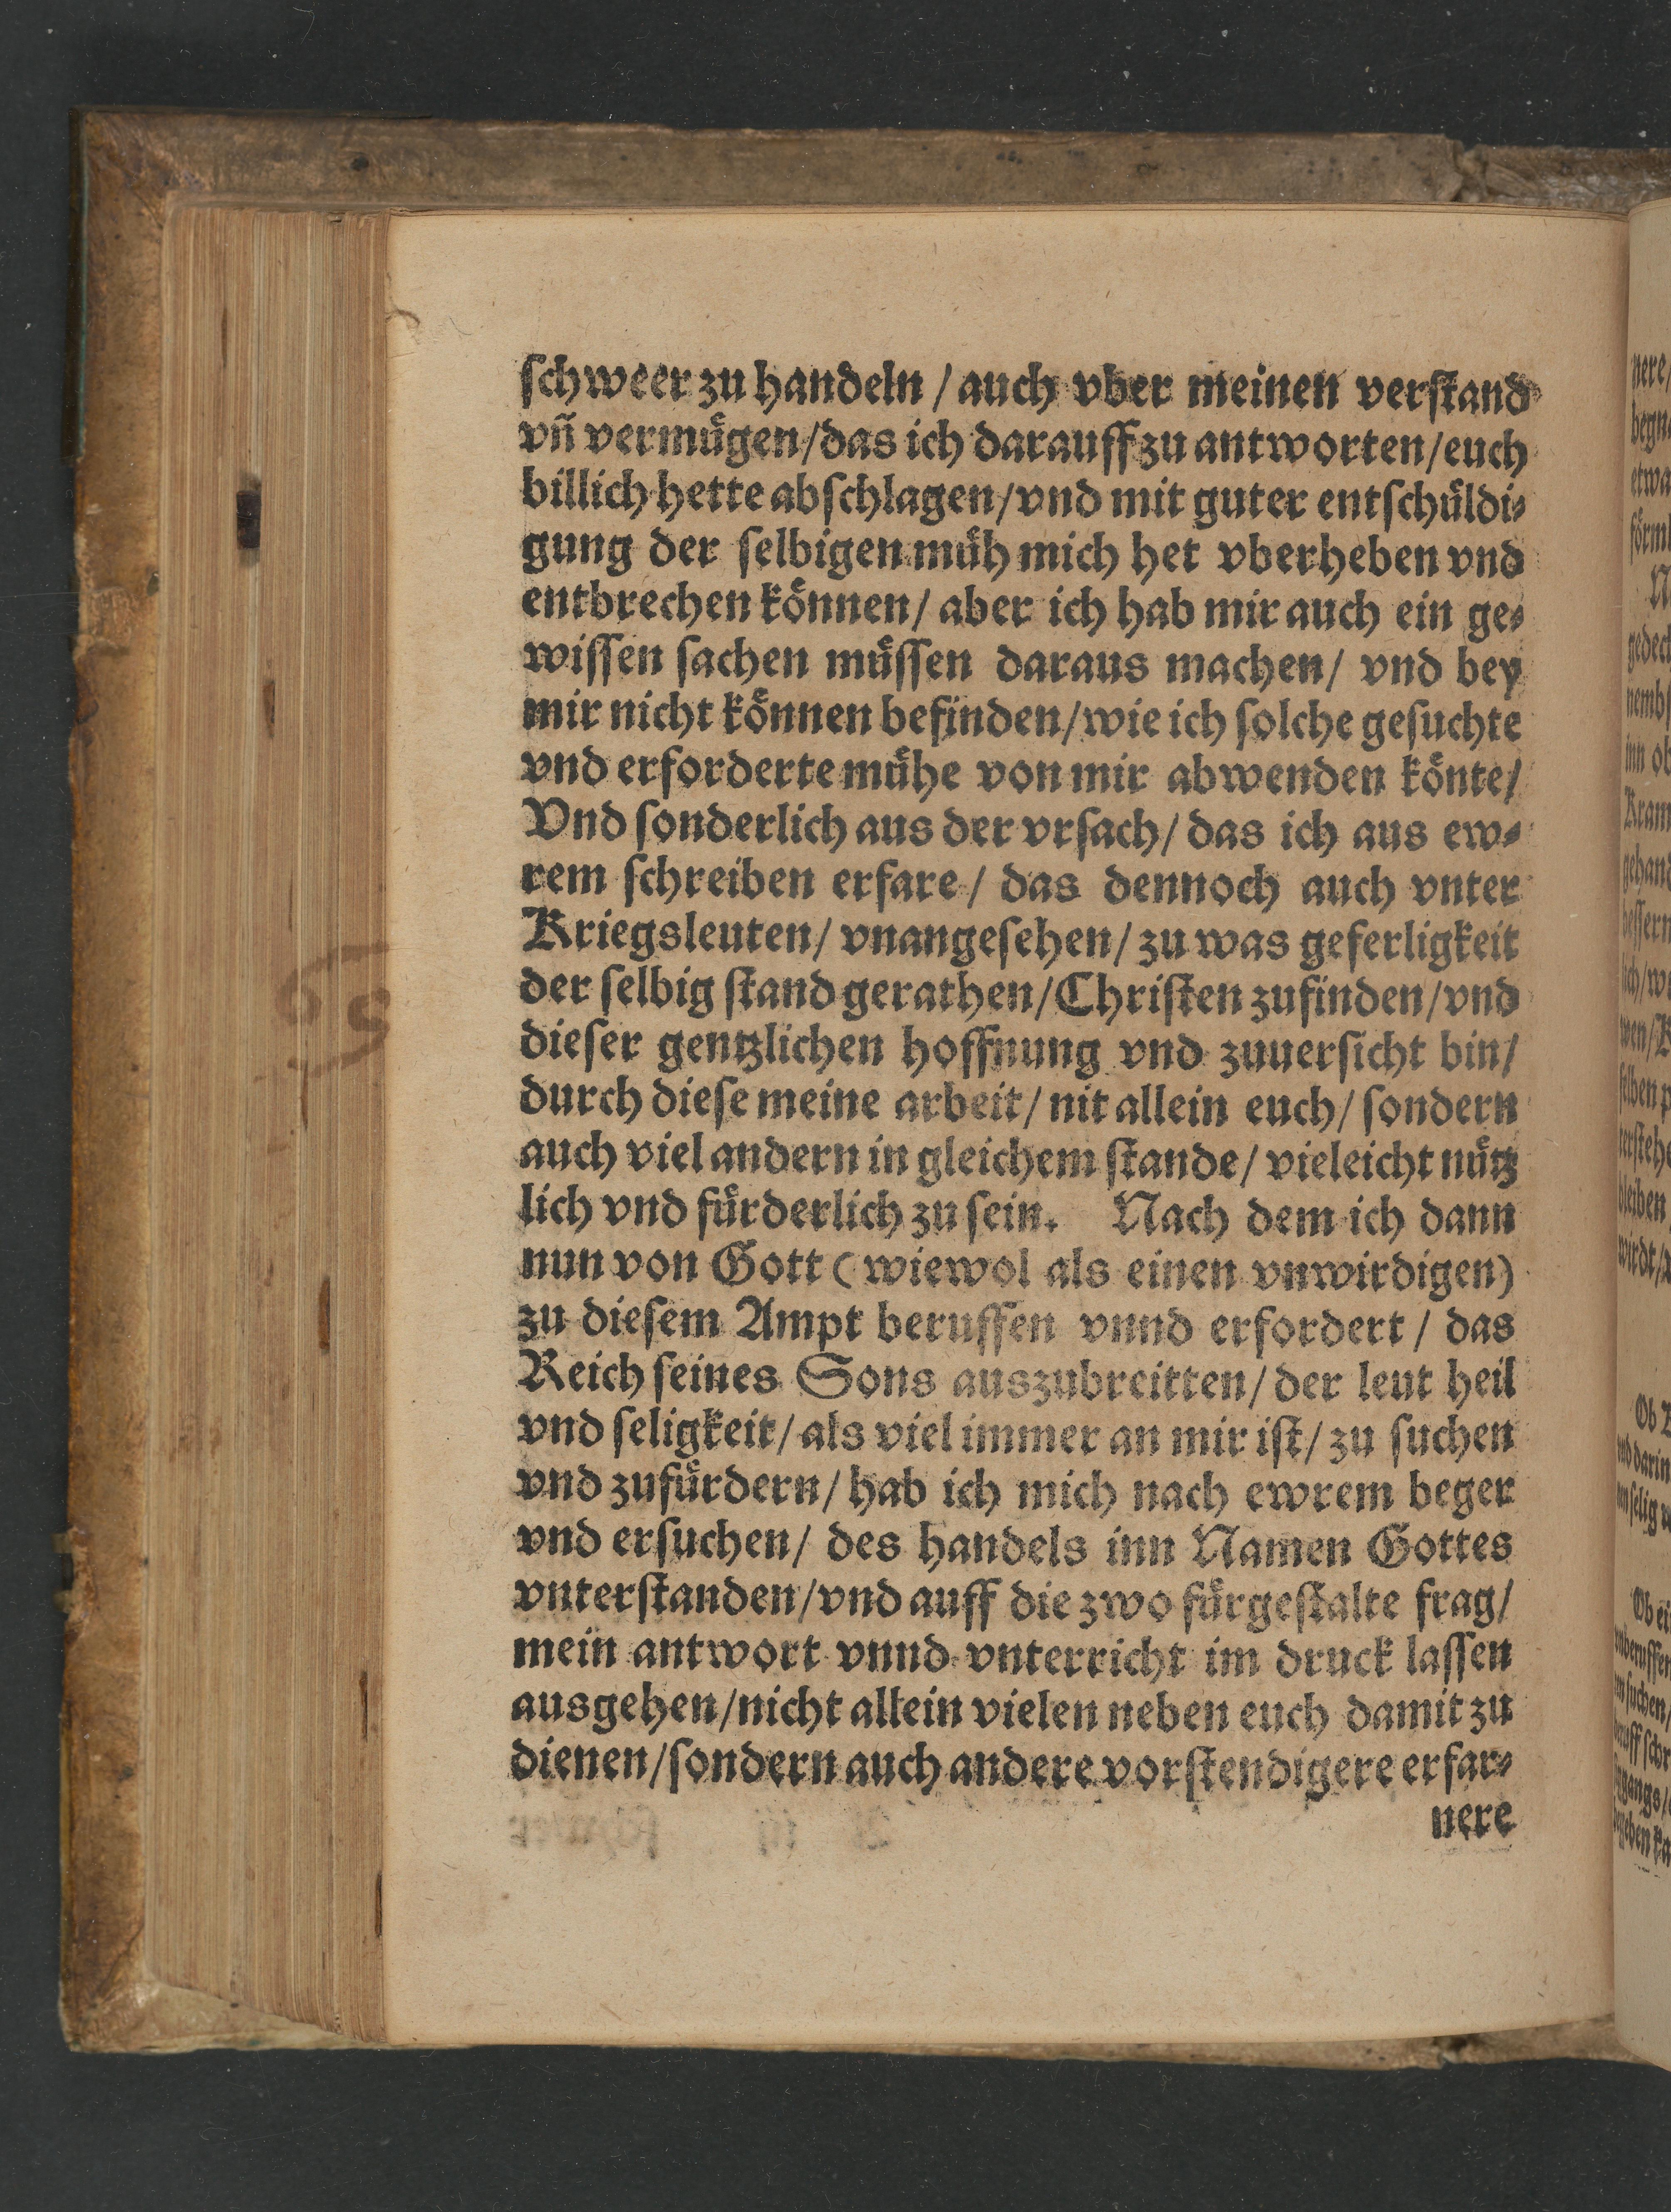 ſchweer zu handeln / auch vber meinen verſtand
vñ vermuͤgen/das ich darauff zu antworten/euch
billich hette abſchlagen/vnd mit guter entſchuͤldi⸗
gung der ſelbigen muͤh mich het vberheben vnd
entbrechen koͤnnen/ aber ich hab mir auch ein ge⸗
wiſſen ſachen muͤſſen daraus machen/ vnd bey
mir nicht koͤnnen befinden/wie ich ſolche geſuchte
vnd erforderte muͤhe von mir abwenden koͤnte/
Vnd ſonderlich aus der vrſach/ das ich aus ew⸗
rem ſchreiben erfare / das dennoch auch vnter
Kriegsleuten/ vnangeſehen/ zu was geferligkeit
der ſelbig ſtand gerathen/Chriſten zufinden/vnd
dieſer gentzlichen hoffnung vnd zuuerſicht bin/
durch dieſe meine arbeit/ nit allein euch/ ſondern
auch viel andern in gleichem ſtande/ vieleicht nuͤtz
lich vnd fuͤrderlich zu ſein. Nach dem ich dann
nun von Gott ( wiewol als einen vnwirdigen)
zu dieſem Ampt beruffen vnnd erfordert / das
Reich ſeines Sons auszubreitten/ der leut heil
vnd ſeligkeit/ als viel immer an mir iſt/ zu ſuchen
vnd zufuͤrdern/ hab ich mich nach ewrem beger
vnd erſuchen/ des handels inn Namen Gottes
vnterſtanden/vnd auff die zwo fuͤrgeſtalte frag/
mein antwort vnnd vnterricht im druck laſſen
ausgehen/nicht allein vielen neben euch damit zu
dienen/ſondern auch andere vorſtendigere erfar⸗
nere